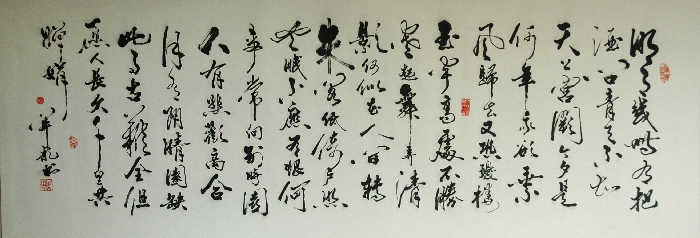 明月幾時有把
酒問青天不知
天上宮闕今夕是
何年我欲乘
風歸去又恐瓊樓
玉宇高處不勝
寒起舞弄清
影何似在人间轉
朱閣低綺户照
無眠不應有恨何
事常向別時圓
人有悲歡離合
月有陰晴圓缺
此事古難全但
愿人長久千里共
嬋娟